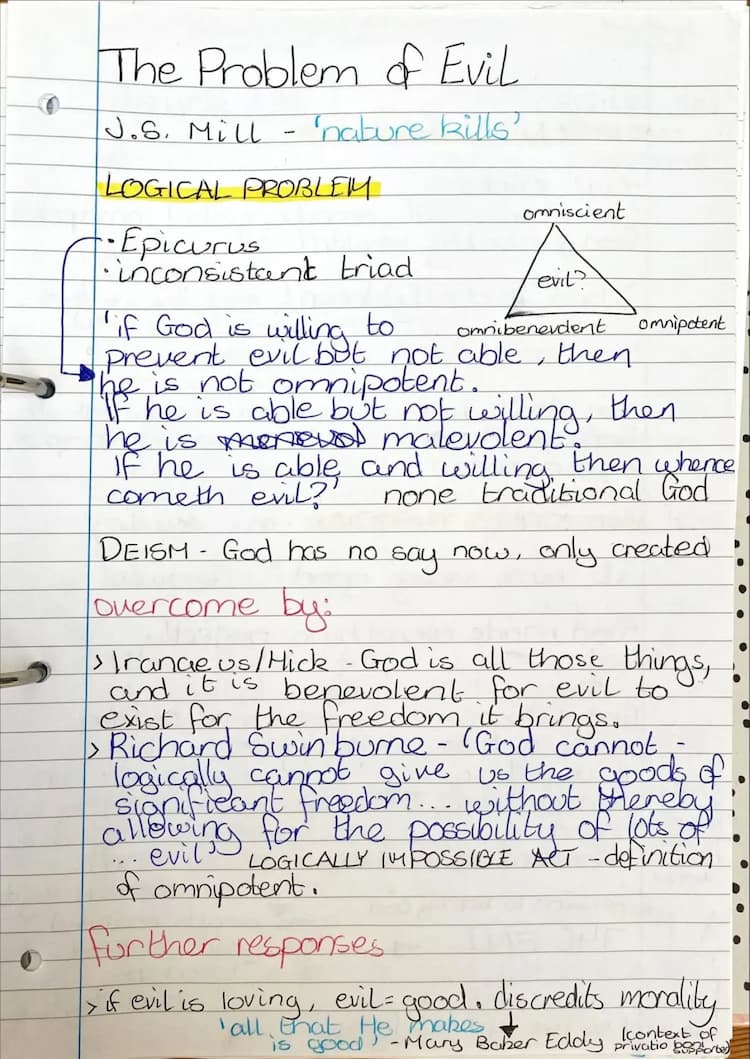 The Problem of Evil
J.S. Mill - 'nature kills'
LOGICAL PROBLEM
omniscient
· Epicurus
· inconsistant triad
evil?
omnibenevolent
omnipotent
'if God is willing to
prevent evil but not able, then
he is not omnipotent.
If he is able but not willing, then
he is malevolent.
If he is able and willing then whence
cometh evil?' none traditional God
DEISM - God has no say now, only created
overcome by:
> Iranaeus/Hick - God is all those things,
and it is benevolent for evil to
exist for the freedom it brings.
> Richard Swinburne - 'God cannot -
logically cannot give us the goods of
significant freedom... without thereby
allowing for the possibility of lots of
... evil' LOGICALLY IMPOSSIBLE ACT - definition
of omnipotent.
further responses
> if evil is loving, evil = good. discredits morality
'all that He makes
is good' - Mary Baker Eddy (context of
privatio boni supporter)